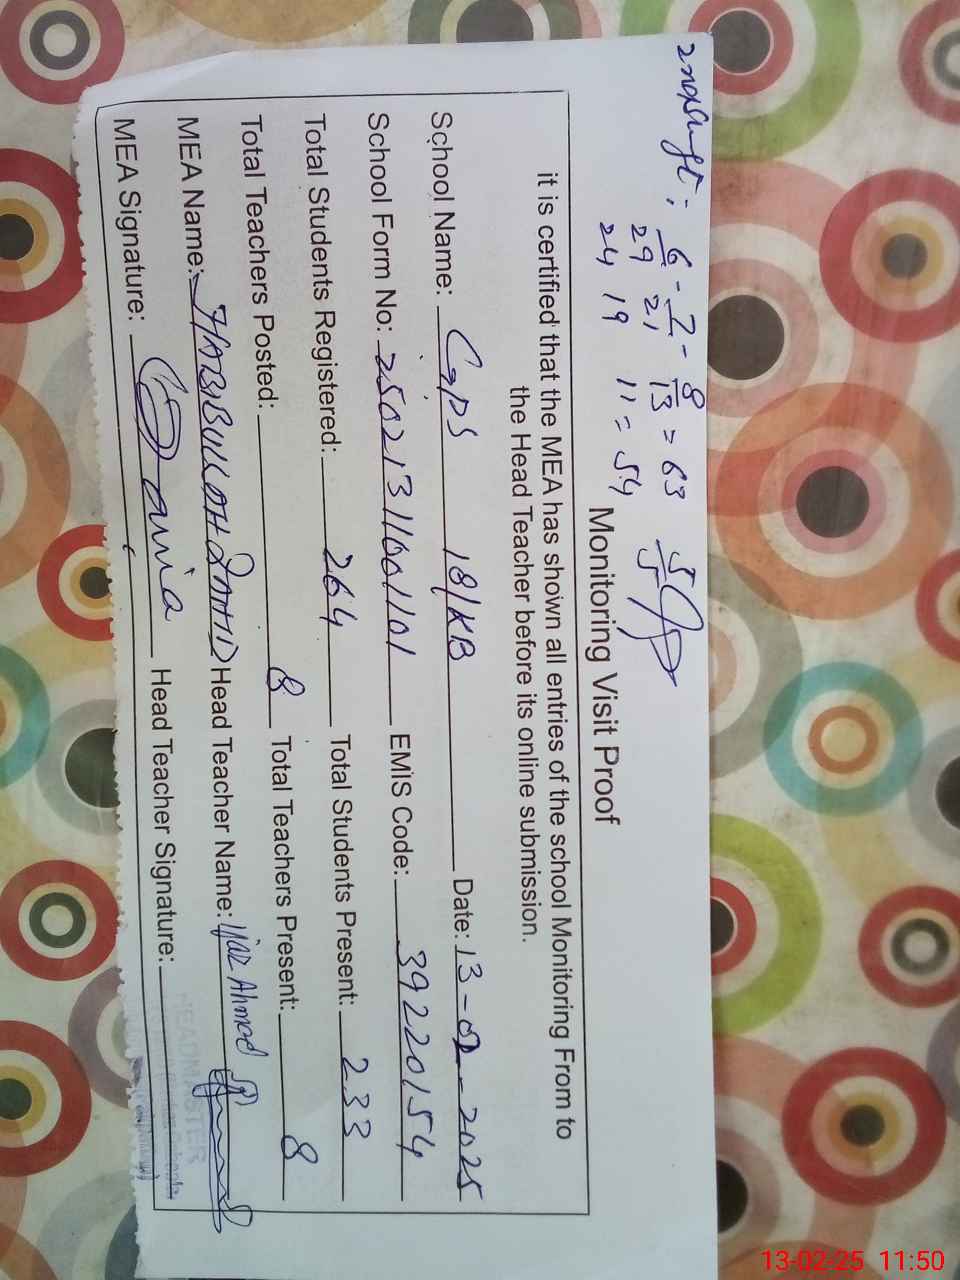 2nd Shift: 6 - 7 - 8
29 21 13 = 63 5/5
24 19 11 = 54
Monitoring Visit Proof
it is certified that the MEA has shown all entries of the school Monitoring From to
the Head Teacher before its online submission.
School Name: GPS 18/KB Date: 13-02-2025
School Form No: 250213116001101 EMIS Code: 39220154
Total Students Registered: 264 Total Students Present: 233
Total Teachers Posted: 8 Total Teachers Present: 8
MEA Name: HABIBULLAH Head Teacher Name: Ijaz Ahmad
MEA Signature: Head Teacher Signature:
HEADMASTER
13-02-25 11:50